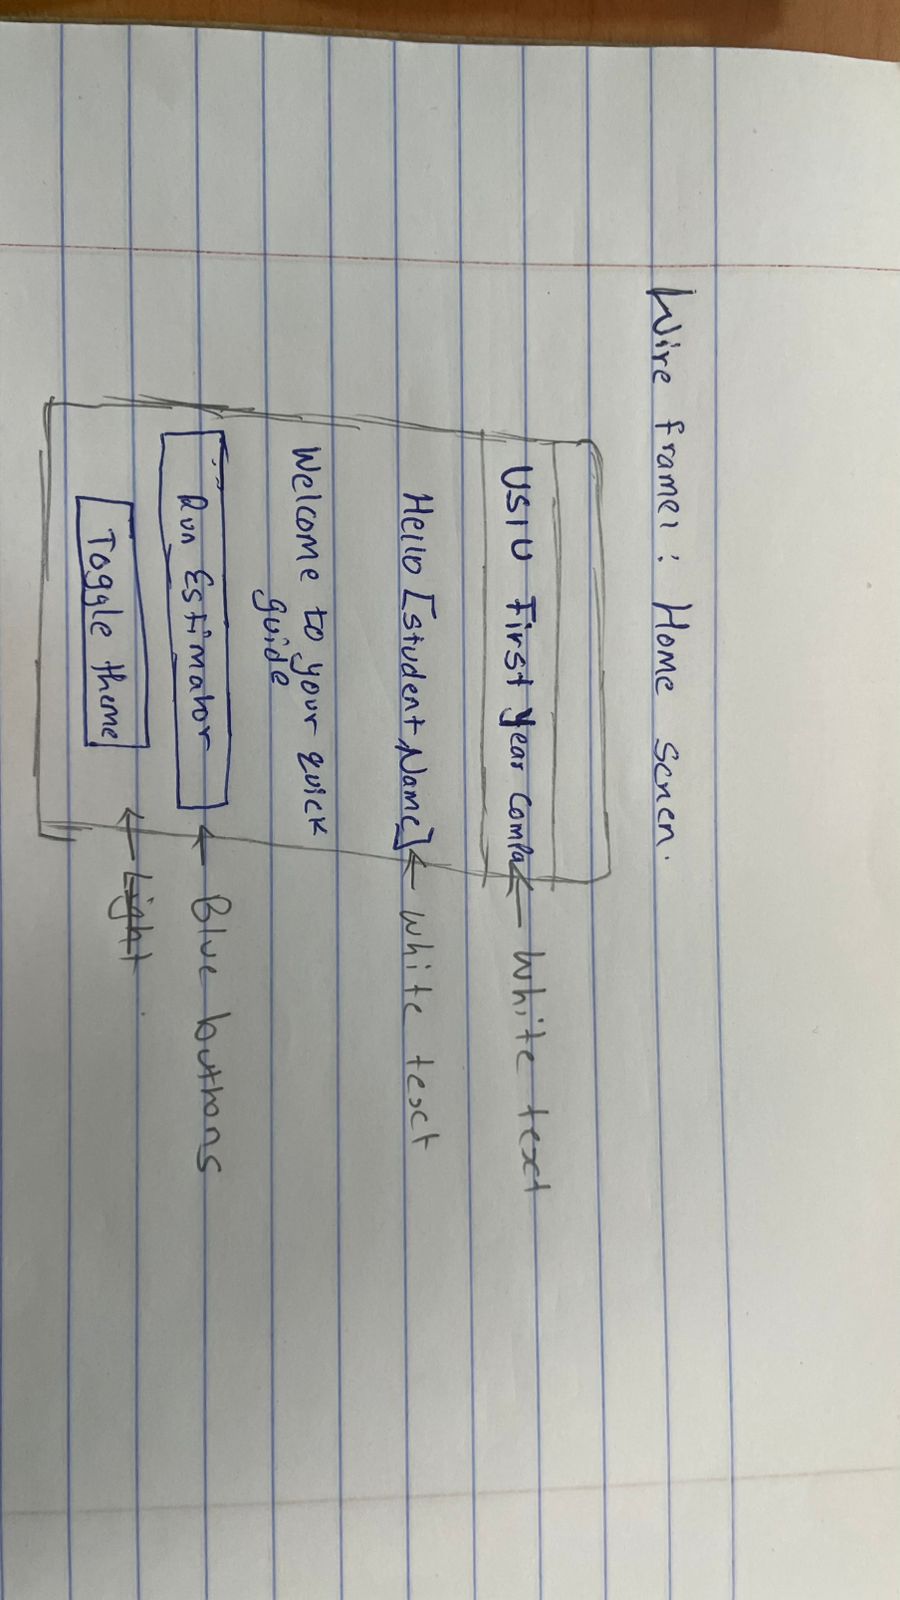 Wire frame1: Home Screen.
USIU First year Compa
← White text
Hello [student Name]
← white text
Welcome to your quick
guide
Run Estimator
← Blue buttons
Toggle theme
← Light